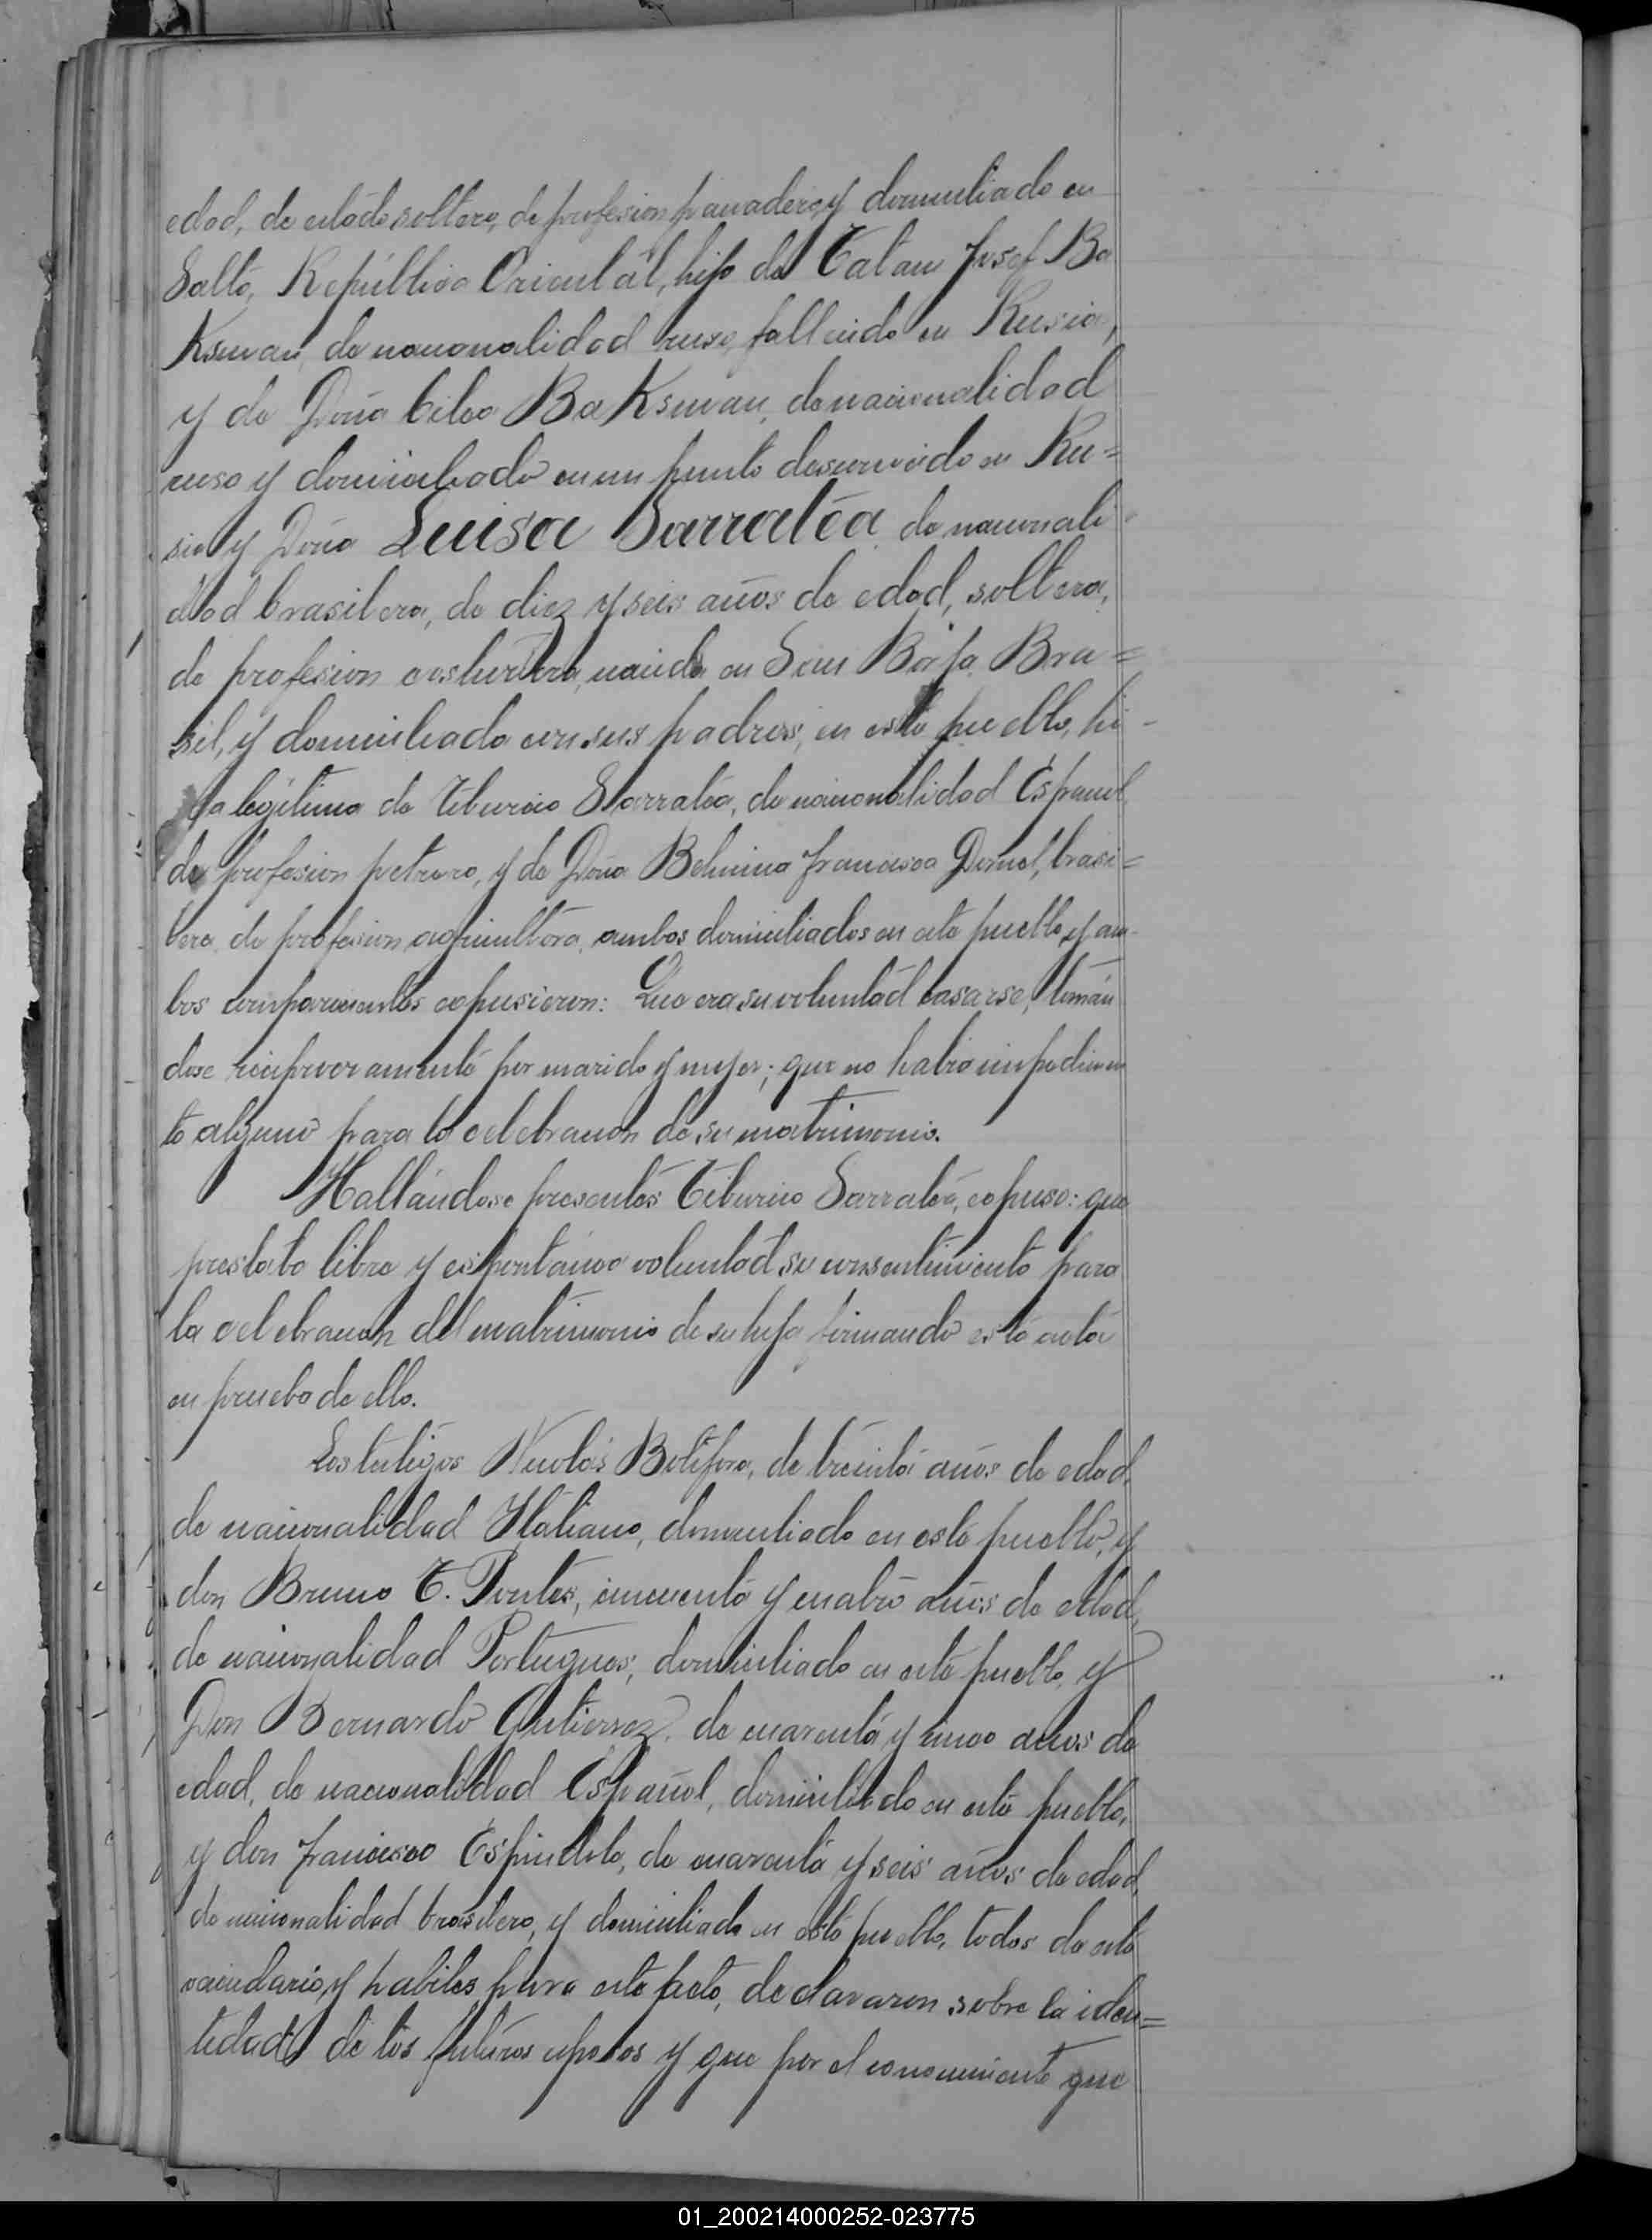 edad, de estado soltero, de profesion panadero y domiciliado en
Salto, República Oriental, hijo de Catau Josef Ba
Ksman, de nacionalidad ruso, fallecido en Rusia,
y de Doña Cilea BaKsman, de nacionalidad
rusa y domiciliada en un punto desconocido en Ru=
sia y Doña Luisa Sarratéa de nacionali
dad brasilera, de diez y seis años de edad, soltera,
de profesion costurera, nacida en San Borja Bra=
sil, y domiciliada con sus padres, en este pueblo, hi-
ja legítima de Tiburcio Sarratéa, de nacionalidad Español
de profesion petrero, y de Doña Belmira Francisca Dornel, brasi=
lera, de profesion agricultora, ambos domiciliados en este pueblo y am-
bos comparecientes expusieron: Que era su voluntad casarse, tomán
dose reciprocramente por marido y mujer; que no habia impedimen
to alguno para la celebracion de su matrimonio.
Hallándose presentes Tiburcio Sarratéa, expuso: que
prestaba libre y espontánea voluntad su consentimiento para
la celebracion del matrimonio de su hija firmando esta acta
en prueba de ello.
Los testigos Nicolás Botifora, de treinta años de edad,
de nacionalidad Italiano, domiciliado en este pueblo, y
don Bruno T. Pontes, cincuenta y cuatro años de edad,
de nacionalidad Portugues, domiciliado en este pueblo, y
Don Bernardo Gutierrez, de cuarenta y cinco años de
edad, de nacionalidad Español, domiciliado en este pueblo,
y don Francisco Espindola, de cuarenta y seis años de edad,
de nacionalidad brasilero, y domiciliado en este pueblo, todos de este
vecindario y habiles para este acto, declararon sobre la iden=
tidad de los futuros esposos y que por el conocimiento que
01_200214000252-023775